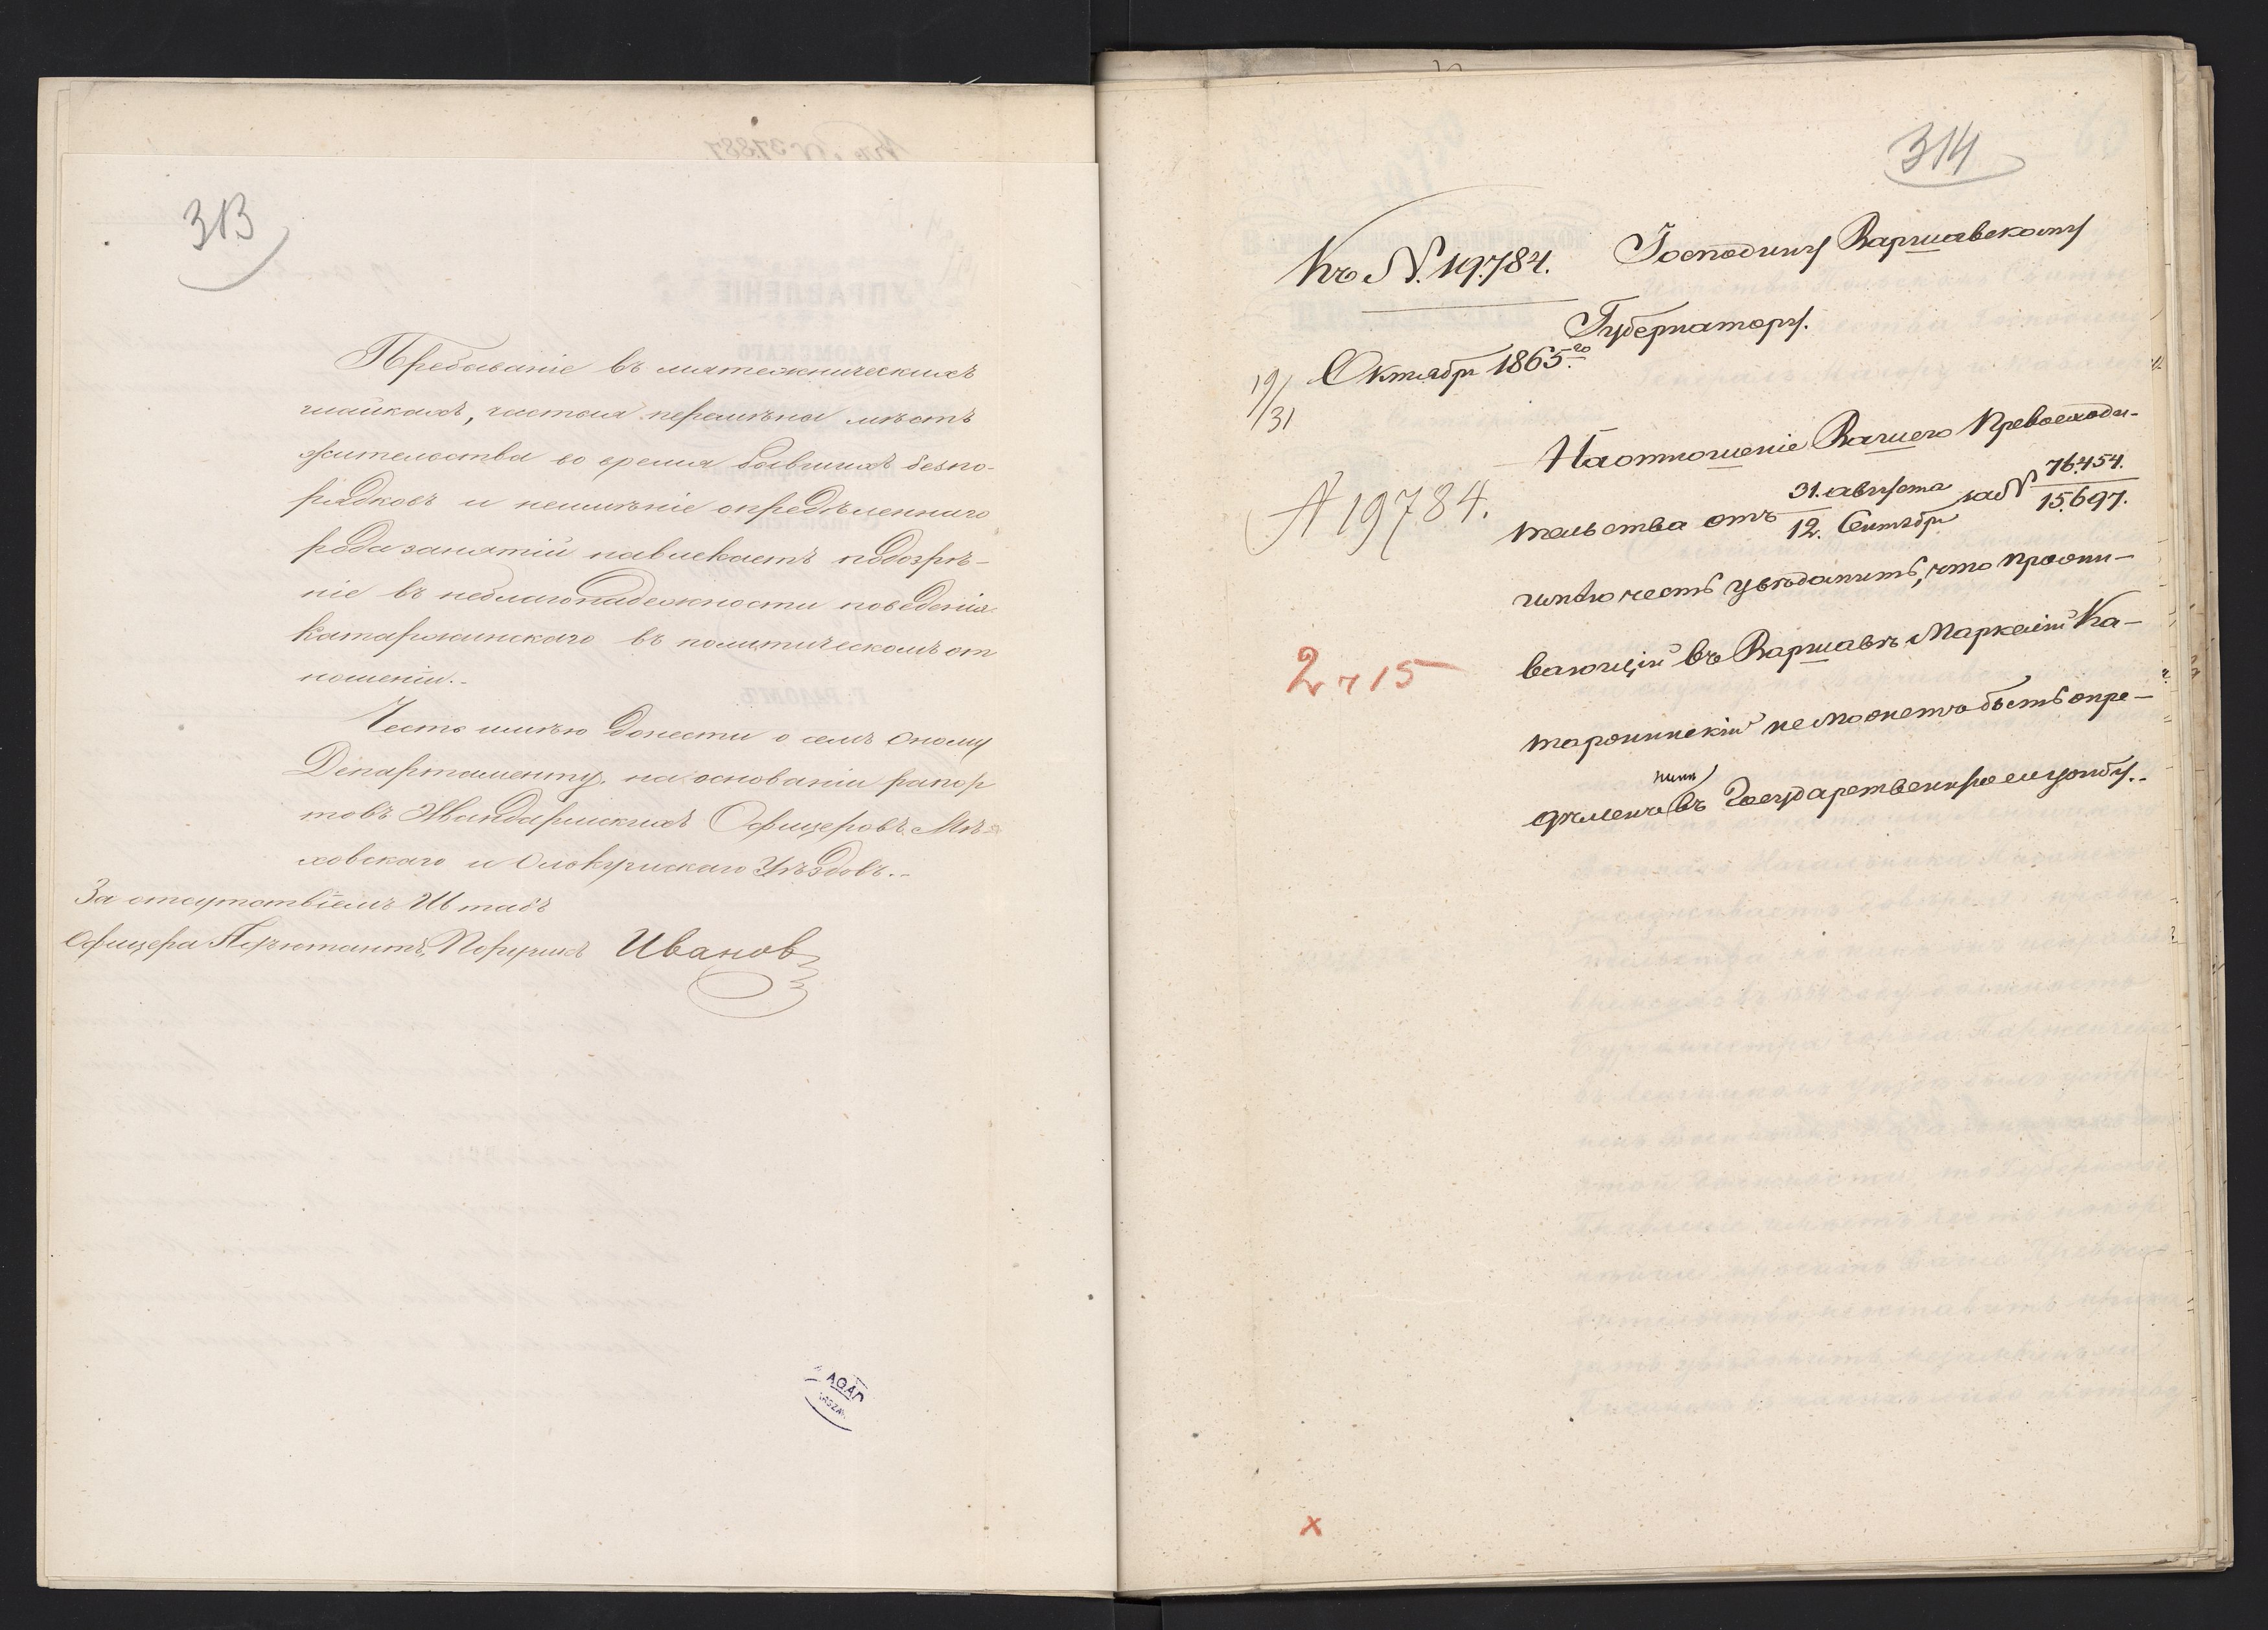 313
Пребываніе въ мятежническихъ
шайкахъ, частая перемѣна мѣстъ
жительства во время бывшихъ безпо-
рядковъ и неимѣніе опредѣленнаго
рода занятій навлекаетъ подозрѣ-
ніе въ неблагонадежности поведенія
Катаржинскаго въ политическомъ от
ношеніи.-
Честь имѣю донести о семъ оному
Департаменту, на основаніи рапор
товъ Жандармскихъ Офицеровъ Мѣ-
ховскаго и Олькушскаго Уѣздовъ.-
За отсутствіемъ Штабъ
Офицера Адъютантъ, Поручикъ Иванов
AGAD
314
Къ N. 19.784.
Господину Варшавскому
Губернатору.
19/31 Октября 1865го
A 19784.
На отношеніе Вашего Превосходи-
тельства отъ 31. августа / 12. Сентября за N 76.454. / 15.697.
имѣю честь увѣдомить, что прожи-
вающій въ Варшавѣ Маркелій Ка-
таржинскій не можетъ быть опре-
дѣленъ нынѣ въ Государственную службу.-
2 ч 15
x